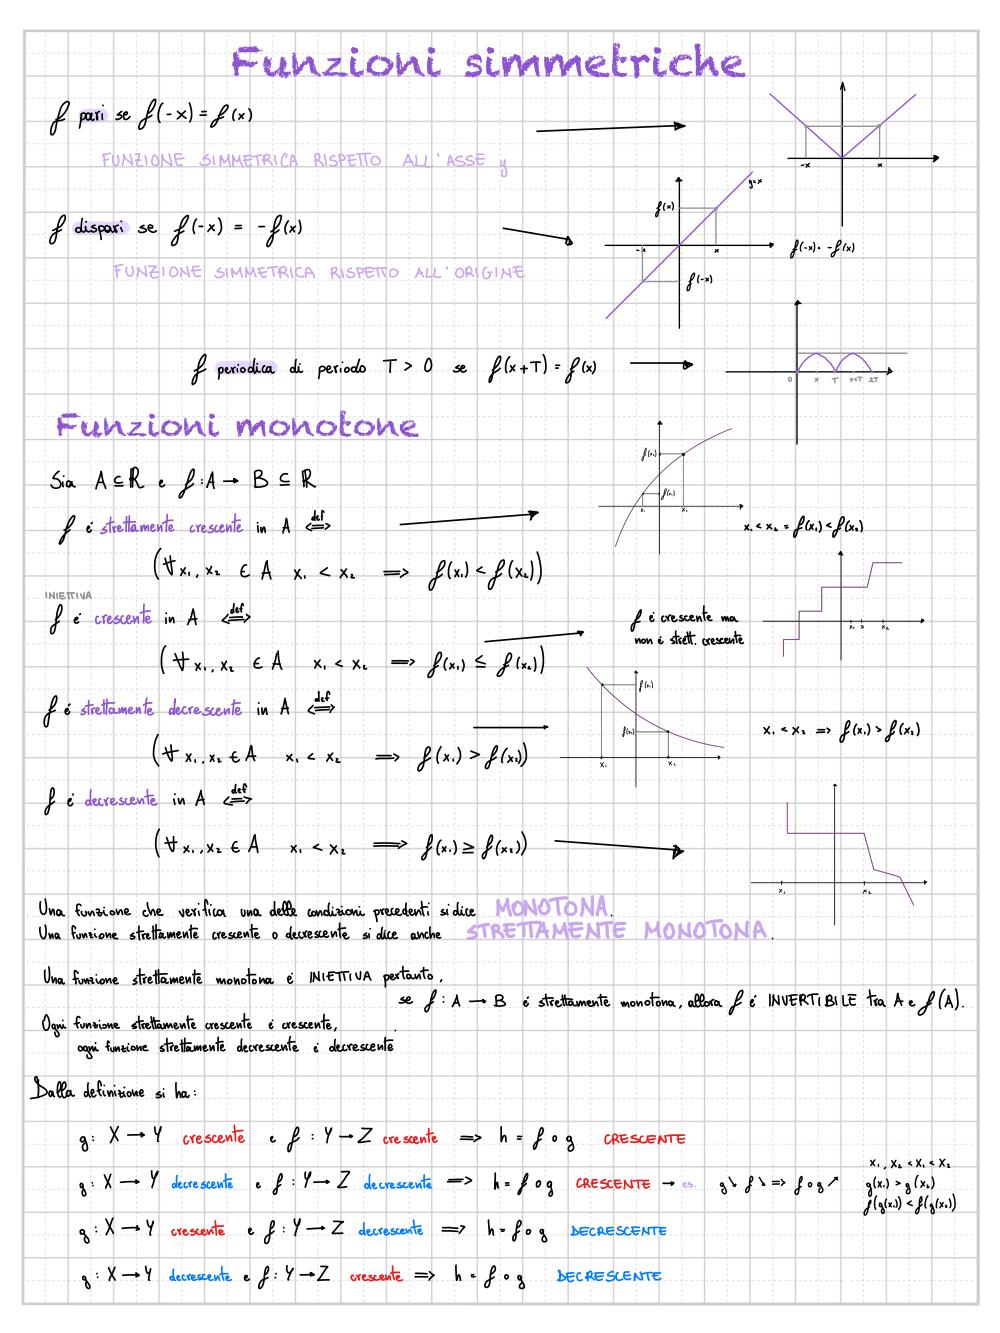 Funzioni simmetriche
f pari se f(-x) = f(x)
FUNZIONE SIMMETRICA RISPETTO ALL'ASSE y
-x x
y=x
f(x)
f dispari se f(-x) = -f(x)
-x x
f(-x)· -f(x)
FUNZIONE SIMMETRICA RISPETTO ALL'ORIGINE
f(-x)
f periodica di periodo T > 0 se f(x+T) = f(x)
0 x T x+T 2T
Funzioni monotone
Sia A ⊆ ℝ e f: A → B ⊆ ℝ
f(x₂)
f(x₁)
x₁ x₂
f é strettamente crescente in A ⟺ def
x₁ < x₂ = f(x₁) < f(x₂)
(∀ x₁, x₂ ∈ A x₁ < x₂ ⟹ f(x₁) < f(x₂))
INIETTIVA
f é crescente in A ⟺ def
f é crescente ma
non é strett. crescente
x₁ x x₂
(∀ x₁, x₂ ∈ A x₁ < x₂ ⟹ f(x₁) ≤ f(x₂))
f é strettamente decrescente in A ⟺ def
f(x₁)
f(x₂)
x₁ x₂
x₁ < x₂ ⟹ f(x₁) > f(x₂)
(∀ x₁, x₂ ∈ A x₁ < x₂ ⟹ f(x₁) > f(x₂))
f é decrescente in A ⟺ def
(∀ x₁, x₂ ∈ A x₁ < x₂ ⟹ f(x₁) ≥ f(x₂))
x₁ x₂
Una funzione che verifica una delle condizioni precedenti si dice MONOTONA.
Una funzione strettamente crescente o decrescente si dice anche STRETTAMENTE MONOTONA.
Una funzione strettamente monotona é INIETTIVA pertanto,
se f: A → B é strettamente monotona, allora f é INVERTIBILE tra A e f(A).
Ogni funzione strettamente crescente é crescente,
ogni funzione strettamente decrescente é decrescente
Dalla definizione si ha:
g: X → Y crescente e f: Y → Z crescente ⟹ h = f o g CRESCENTE
g: X → Y decrescente e f: Y → Z decrescente ⟹ h = f o g CRESCENTE → es. g↘ f↘ ⟹ f o g ↗
x₁, x₂ < x₁ < x₂
g(x₁) > g(x₂)
f(g(x₁)) < f(g(x₂))
g: X → Y crescente e f: Y → Z decrescente ⟹ h = f o g DECRESCENTE
g: X → Y decrescente e f: Y → Z crescente ⟹ h = f o g DECRESCENTE